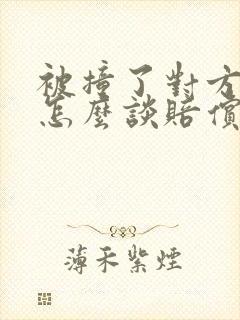 被撞了對方
怎麼談賠償
薄禾紫煙